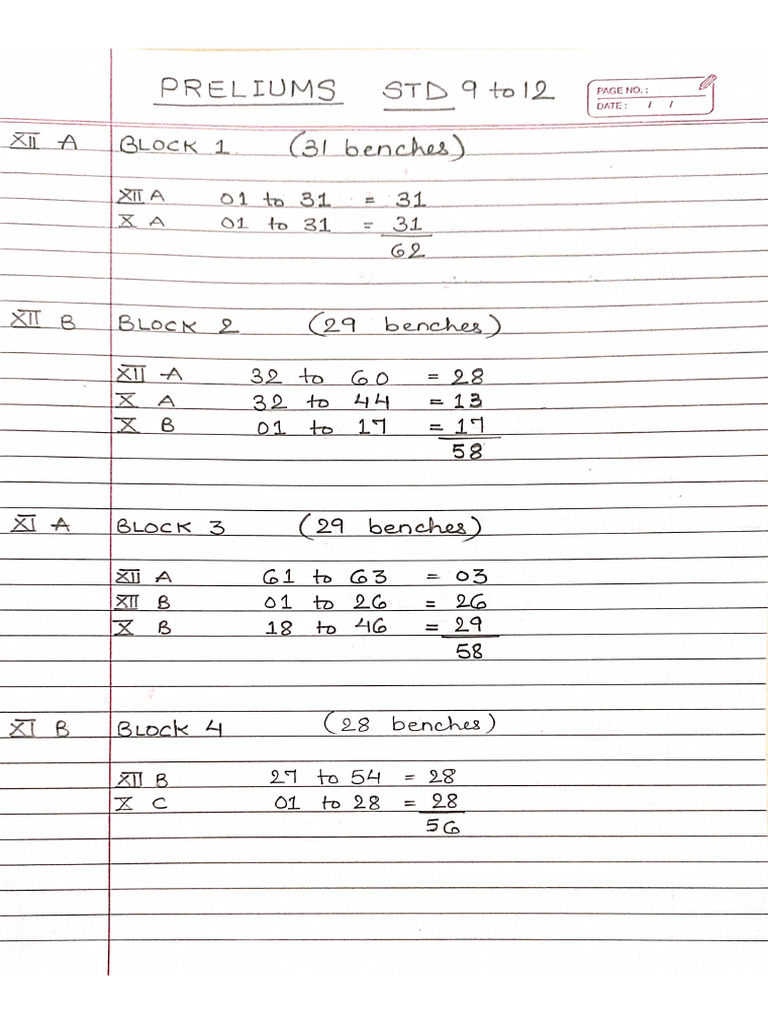 PRELIUMS STD 9 to 12
PAGE NO. :
DATE : / /
XII A BLOCK 1 (31 benches)
XII A 01 to 31 = 31
X A 01 to 31 = 31
62
XII B BLOCK 2 (29 benches)
XII A 32 to 60 = 28
X A 32 to 44 = 13
X B 01 to 17 = 17
58
XI A BLOCK 3 (29 benches)
XII A 61 to 63 = 03
XII B 01 to 26 = 26
X B 18 to 46 = 29
58
XI B BLOCK 4 (28 benches)
XII B 27 to 54 = 28
X C 01 to 28 = 28
56